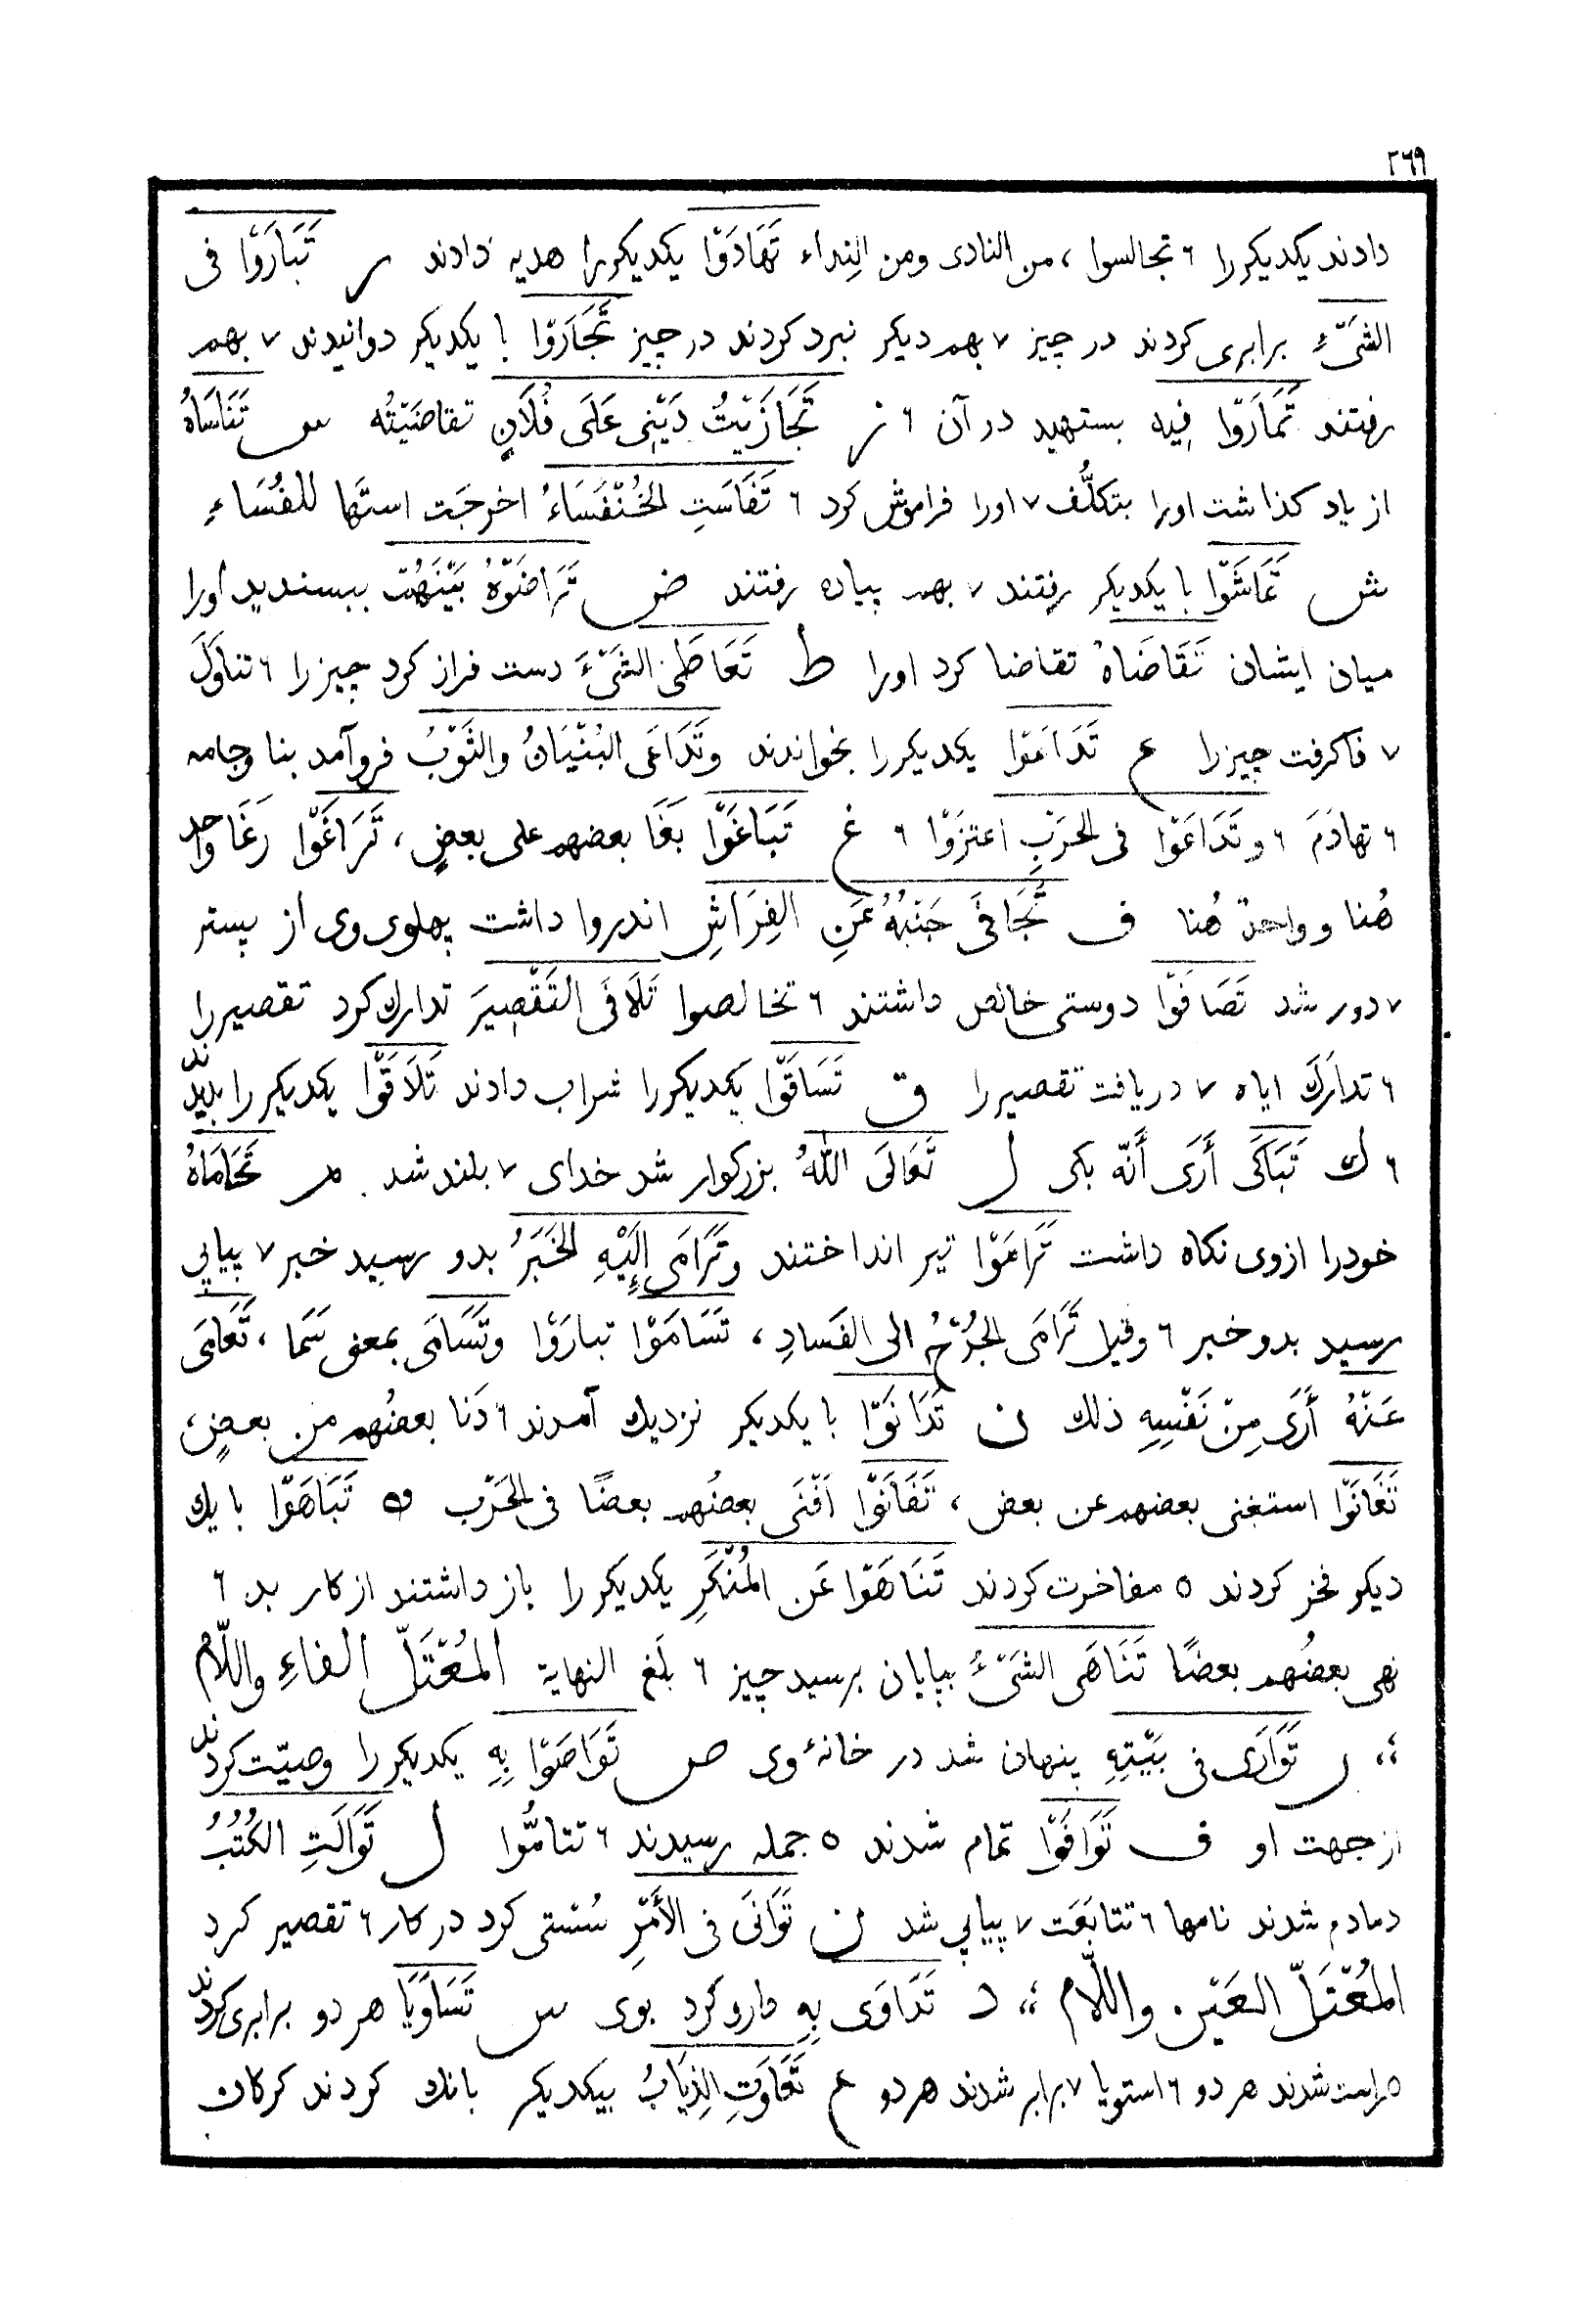 ٢٦٩
دادند یکدیکررا ٦ تجالسوا ، من النادی ومن النِداء تَهَادَوْا یکدیکررا هدیه دادند ر تَبَارَوْا فی
الشَیْءِ برابری کردند در چیز ٧ بهم دیکر نبرد کردند در چیز تَجَارَوْا با یکدیکر دوانیدند ٧ بهم
رفتند تَمَارَوْا فِیه بستهید در آن ٦ ز تَجَازَیْتُ دَیْنِی عَلَی فُلَانٍ تقاضَیْتُه س تَنَاسَاهُ
از یاد کذاشت اورا بتکلُّف ٧ اورا فراموش کرد ٦ تَفَاسَتِ الخُنْفَسَاءُ اخرجَت استَها للفُسَاءِ
ش تَمَاشَوْا با یکدیکر رفتند ٧ بهم پیاده رفتند ض تَرَاضَوْهُ بَیْنَهُمْ بپسندید اورا
میان ایشان تَقَاضَاهُ تقاضا کرد اورا ط تَعَاطَی الشَیْءَ دست فراز کرد چیز را ٦ تناوَلَ
٧ فاکرفت چیزرا ع تَدَاعَوْا یکدیکررا بخواندند وتَدَاعَی البُنْیَانُ والثَوْبُ فروآمد بنا وجامه
٦ تهادَمَ ٦ وتَدَاعَوْا فی الحَرْبِ اعتزَوْا ٦ غ تَبَاغَوْا بَغَا بعضهم علی بعضٍ ، تَرَاغَوْا رَغَا واحد
هُنا وواحدٌ هُنا ف تَجَافَی جَنْبُهُ عَنِ الفِرَاشِ اندروا داشت پهلوی وی از بستر
٧ دور شد تَصَافَوْا دوستی خالص داشتند ٦ تخالصوا تَلَافَی التَقْصِیرَ تدارك کرد تقصیررا
٦ تدارَكَ ایاه ٧ دریافت تقصیررا ق تَسَاقَوْا یکدیکررا شراب دادند تَلَاقَوْا یکدیکررا بدیدند
٦ ك تَبَاکَی أَرَی أَنّه بکی ل تَعَالَی اللّٰهُ بزرکوار شد خدای ٧ بلند شد م تَحَامَاهُ
خودرا ازوی نکاه داشت تَرَامَوْا تیر انداختند وتَرَامَی إِلَیْهِ الخَبَرُ بدو رسید خبر ٧ پیاپی
رسید بدو خبر ٦ وقیل تَرَامَی الجُرْحُ الی الفَسَادِ ، تَسَامَوْا تبارَوْا وتَسَامَی بمعنی سَمَا ، تَعَامَی
عَنْهُ أَرَی مِنْ نَفْسِهِ ذلك ن تَدَانَوْا با یکدیکر نزدیك آمدند ٦ دَنا بعضُهم من بعضٍ ،
تَغَانَوْا استغنی بعضهم عن بعض ، تَفَانَوْا اَفْنَی بعضُهم بعضًا فی الحَرْب ه تَبَاهَوْا با یك
دیکر فخر کردند ٥ مفاخرت کردند تَنَاهَوْا عَن المُنْکَرِ یکدیکررا باز داشتند از کار بد ٦
نهی بعضُهم بعضًا تَنَاهَی الشَیْءُ بپایان برسید چیز ٦ بلَغ النهایة المُعْتَلّ الفاءِ واللَّام
؛؛ ر تَوَارَی فی بَیْتِهِ پنهان شد در خانهٔ وی ص تَوَاصَوْا بِهِ یکدیکررا وصیّت کردند
از جهت او ف تَوَافَوْا تمام شدند ٥ جمله رسیدند ٦ تتامُّوا ل تَوَالَتِ الکُتُبُ
دمادم شدند نامها ٦ تتابَعَت ٧ پیاپی شد ن تَوَانَی فی الأَمْرِ سُستی کرد در کار ٦ تقصیر کرد
المُعْتَلّ العَیْن واللَّام ؛؛ د تَدَاوَی بِهِ دارو کرد بوی س تَسَاوَیَا هر دو برابری کردند
٥ راست شدند هر دو ٦ استویا ٧ برابر شدند هر دو ع تَعَاوَتِ الذِیَابُ بیکدیکر بانك کردند کرکان